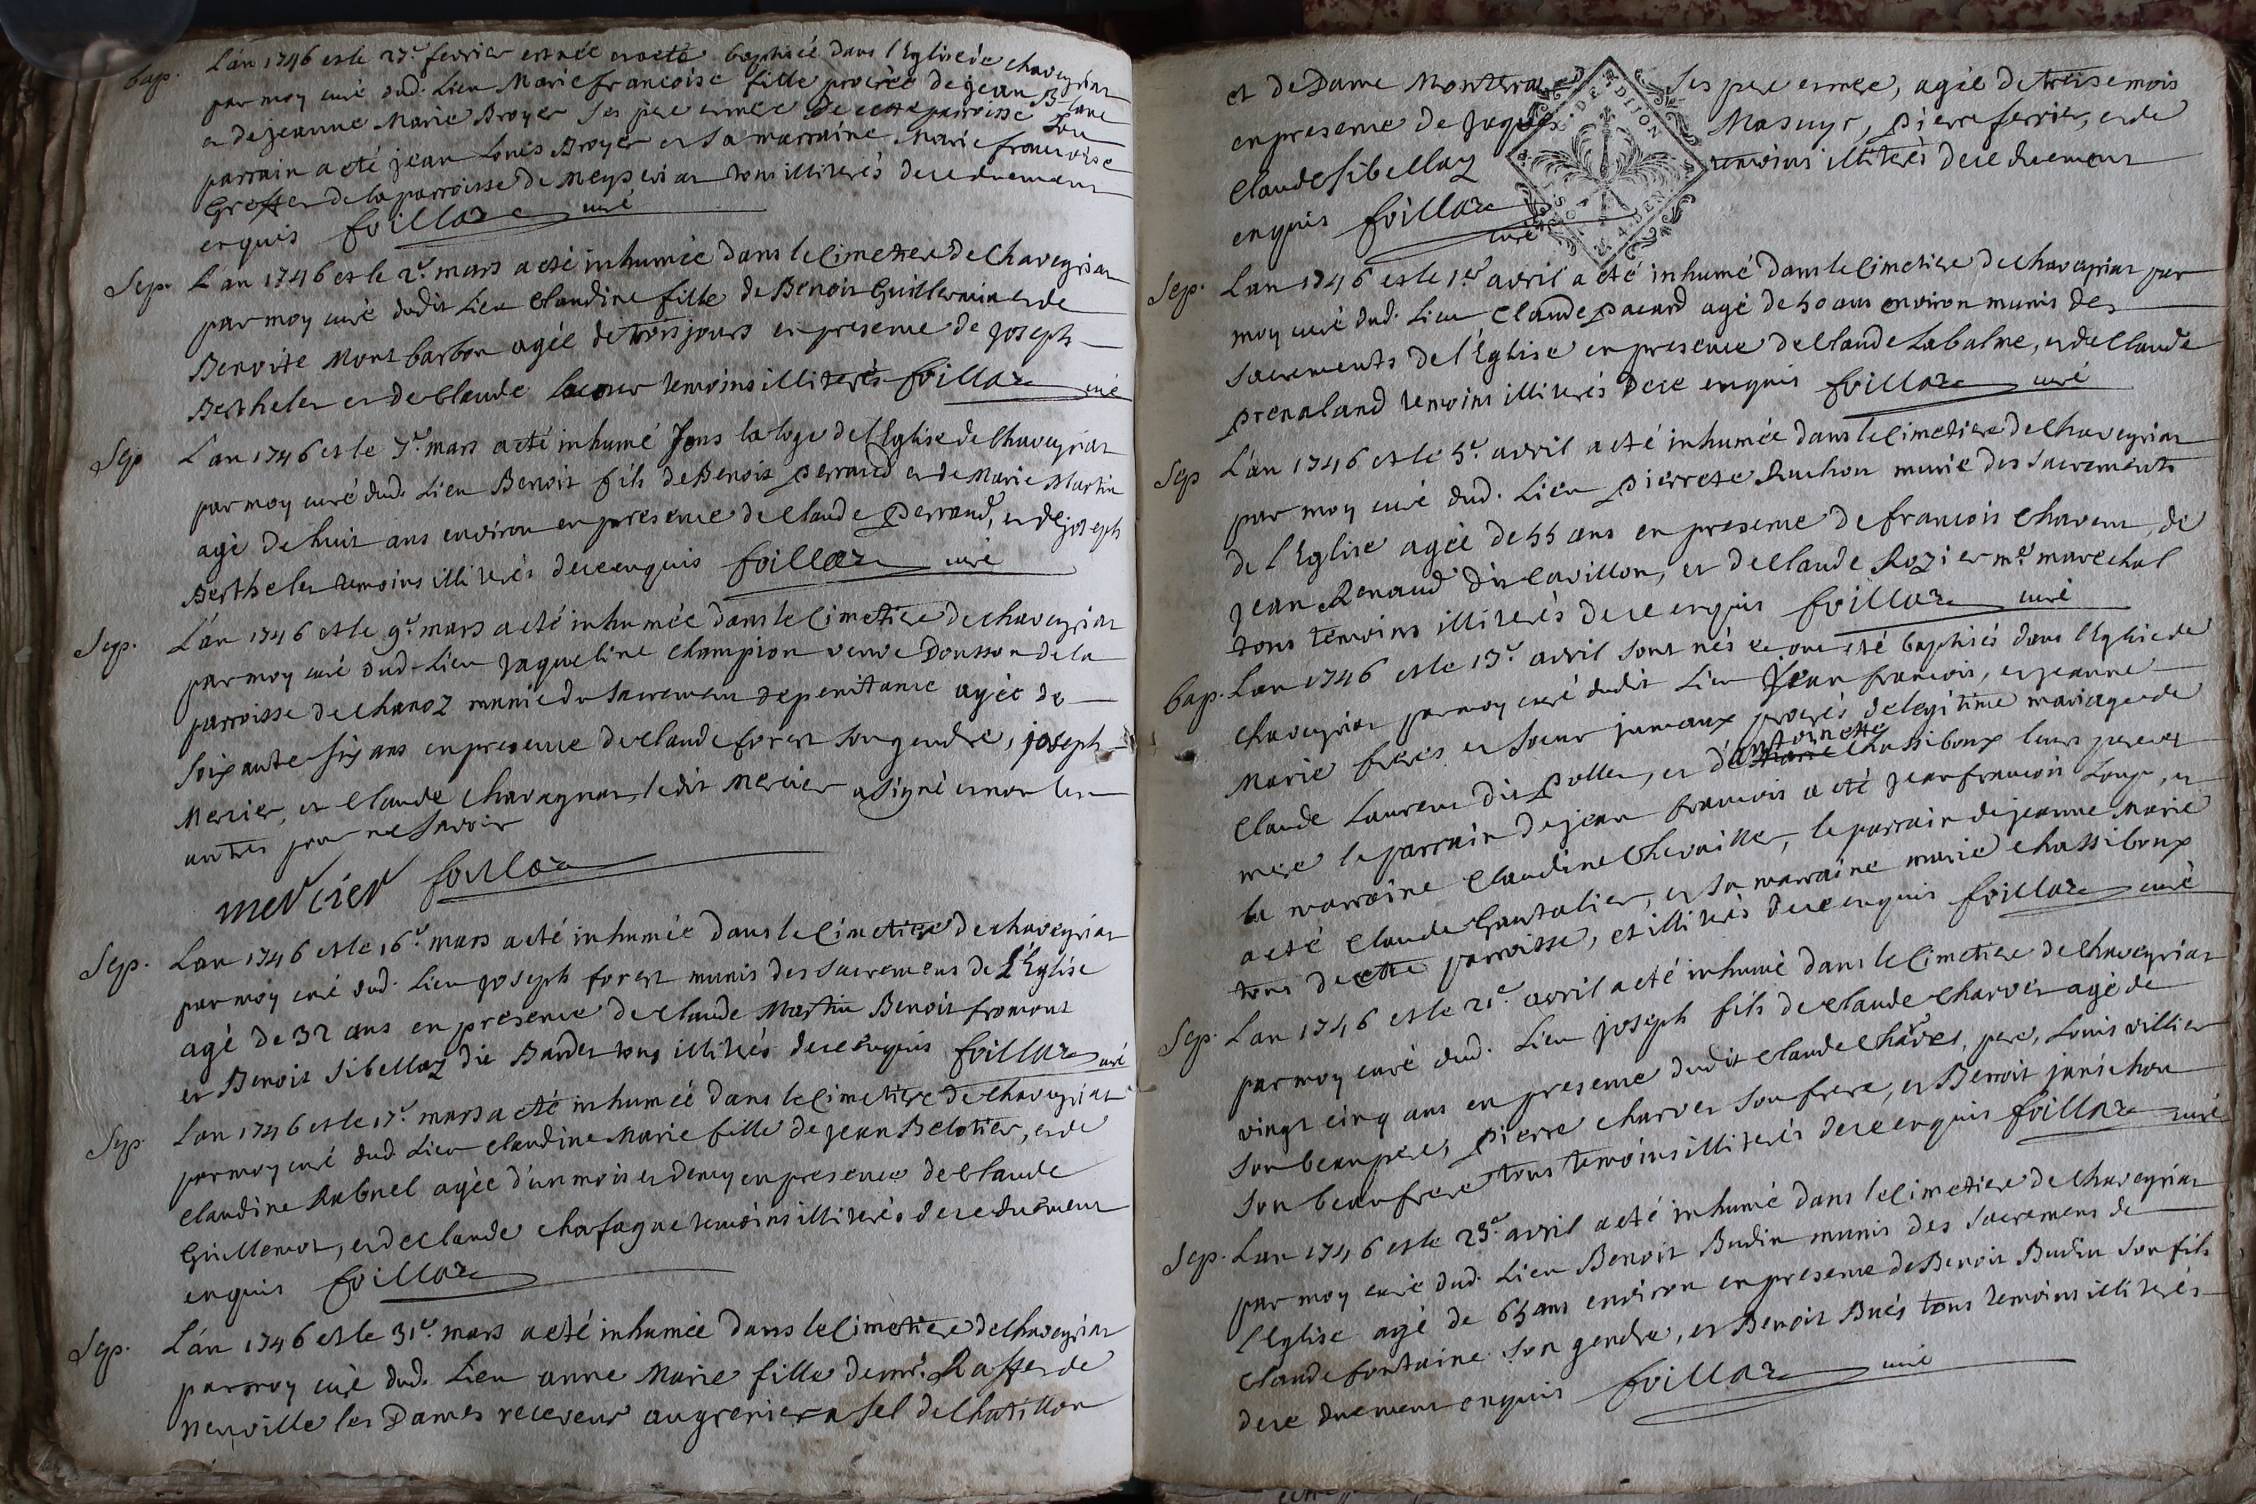 bap. L'an 1746 et le 27.e fevrier est née et a eté baptisée dans l'Eglise de chaveyriat
par moy curé dud. Lieu Marie francoise fille procréé de jean Blanc
et de jeanne Marie Broyer ses pere et mere de cette parroisse son
parrain a eté jean Louis Broyer et sa marraine Marie francoise
de la parroisse de Meyseriat tous illiterés de ce duement
enquis foillaz curé
Sep. L'an 1746 et le 2.e mars a eté inhumée dans le Cimetiere de Chaveyriat
par moy curé dudit Lieu Claudine fille de Benoit Guillermin et de
Benoite Montbarbon agée de trois jours en presence de joseph
Berthelet et de Claude temoins illiterés foillaz curé
Sep L'an 1746 et le 7.e mars a eté inhumé sous la loge de l'Eglise de Chaveyriat
par moy curé dud. Lieu Benoit fils de Benoit perraud et de Marie Martin
agé de huit ans environ en presence de Claude perraud, et de joseph
Berthelet temoins illiterés de ce enquis foillaz curé
Sep. L'an 1746 et le 9.e mars a eté inhumée dans le Cimetiere de chaveyriat
par moy curé dud. Lieu jaqueline champion veuve Dousson de la
parroisse de chanoz munie du sacrement de penitance agée de
soixante six ans en presence de claude forest son gendre, joseph
Mercier, et Claude chavagnat, ledit Mercier a signé et non les
autres pour ne savoir
mercier foillaz
Sep. L'an 1746 et le 16.e mars a eté inhumée dans le Cimetiere de chaveyriat
par moy curé dud. Lieu joseph forest munis des sacremens de l'Eglise
agé de 32 ans en presence de claude Martin Benoit fromont
et Benoit Sibellaz dit Bardet tous illiterés de ce enquis foillaz curé
Sep. L'an 1746 et le 17.e mars a eté inhumée dans le Cimetiere de chaveyriat
par moy curé dud Lieu claudine Marie fille de jean Belotier, et de
claudine Rabuel agée d'un mois et demy en presence de Claude
Guillemot, et de Claude chafagne temoins illiterés de ce duement
enquis foillaz
Sep. L'an 1746 et le 31.e mars a eté inhumée dans le Cimetiere de Chaveyriat
par moy curé dud. Lieu anne Marie fille de mr. Raffet de
neuville les Dames receveur au grenier a sel de Chatillon
et de Dame ses pere et mere, agée de treise mois
en presence de jaques Masuyr, pierre ferrier, et de
Claude Sibellaz temoins illiterés de ce duement
enquis foillaz
curé
Sep. L'an 1746 et le 1.er avril a eté inhumé dans le Cimetiere de Chaveyriat par
moy curé dud. Lieu Claude pacard agé de 50 ans environ munis des
sacrements de l'Eglise en presence de Claude Labalme, et de Claude
prenaland temoins illiterés de ce enquis foillaz curé
Sep L'an 1746 et le 5.e avril a eté inhumée dans le Cimetiere de Chaveyriat
par moy curé dud. Lieu pierrete Ruchon munie des sacrements
de l'Eglise agée de 55 ans en presence de francois Chavent, de
jean Renaud dit Cavillon, et de Claude Rozier me. marechal
tous temoins illiterés de ce enquis foillaz curé
bap. L'an 1746 et le 13.e avril sont nés et ont eté baptisés dans l'Eglise de
chaveyriat par moy curé dudit Lieu jean francois, et jeanne
Marie freres et soeur jumeaux procréés de legitime mariage de
Claude Laurent dit pollet, et d'antoinette Chassiboux leurs pere et
mere le parrain de jean francois a eté jean francois Loup, et
la marraine Claudine Chevailler, le parrain de jeanne Marie
a eté Claude Gautalier, et sa marraine marie chassiboux
tous de cette parroisse, et illiterés de ce enquis foillaz curé
Sep. L'an 1746 et le 21.e avril a eté inhumé dans le Cimetiere de Chaveyriat
par moy curé dud. Lieu joseph fils de Claude Charvet agé de
vingt cinq ans en presence dudit Claude Charvet, pere, Louis villier
son beaupere, pierre charvet son frere, et Benoit janichon
son beaufrere tous temoins illiterés de ce enquis foillaz curé
Sep. L'an 1746 et le 23.e avril a eté inhumé dans le Cimetiere de Chaveyriat
par moy curé dud. Lieu Benoit Budin munis des sacremens de
l'Eglise agé de 65 ans environ en presence de Benoit Budin son fils
Claude fontaine son gendre, et Benoit Bués tous temoins illiterés
de ce duement enquis foillaz curé